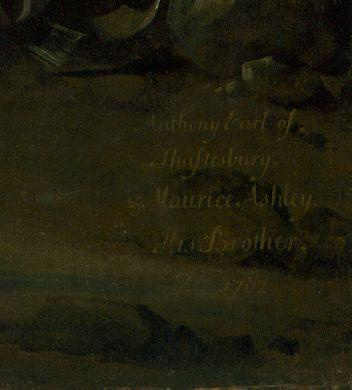 Anthony Earl of
Shaftesbury.
& Maurice. Ashley
His Brother.